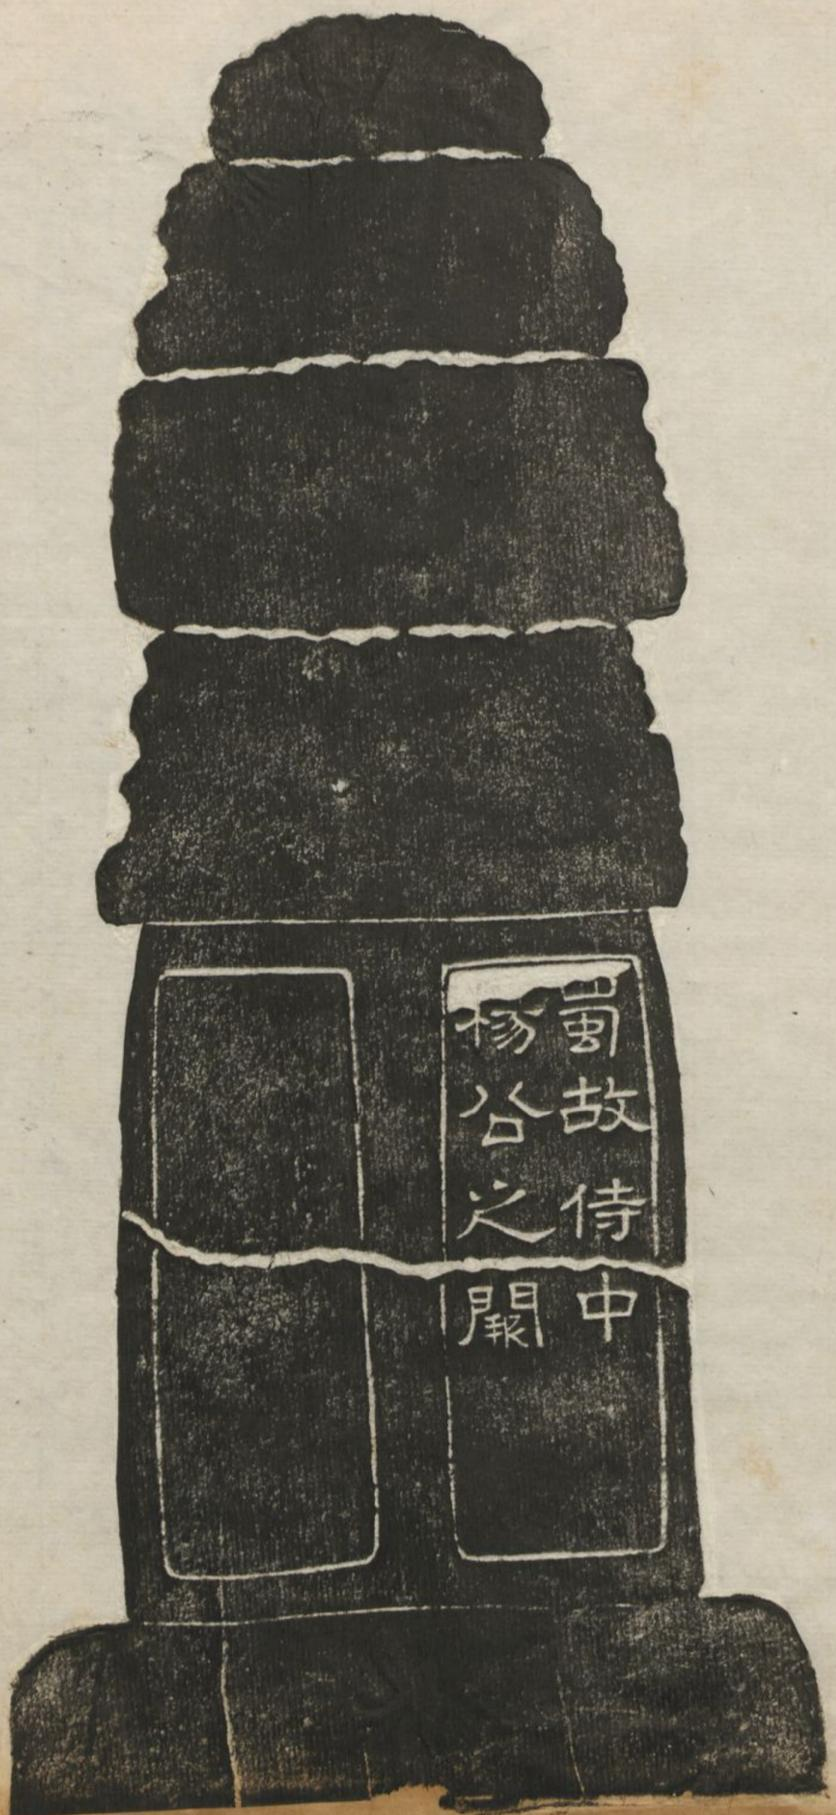 蜀故侍中
楊公之闕